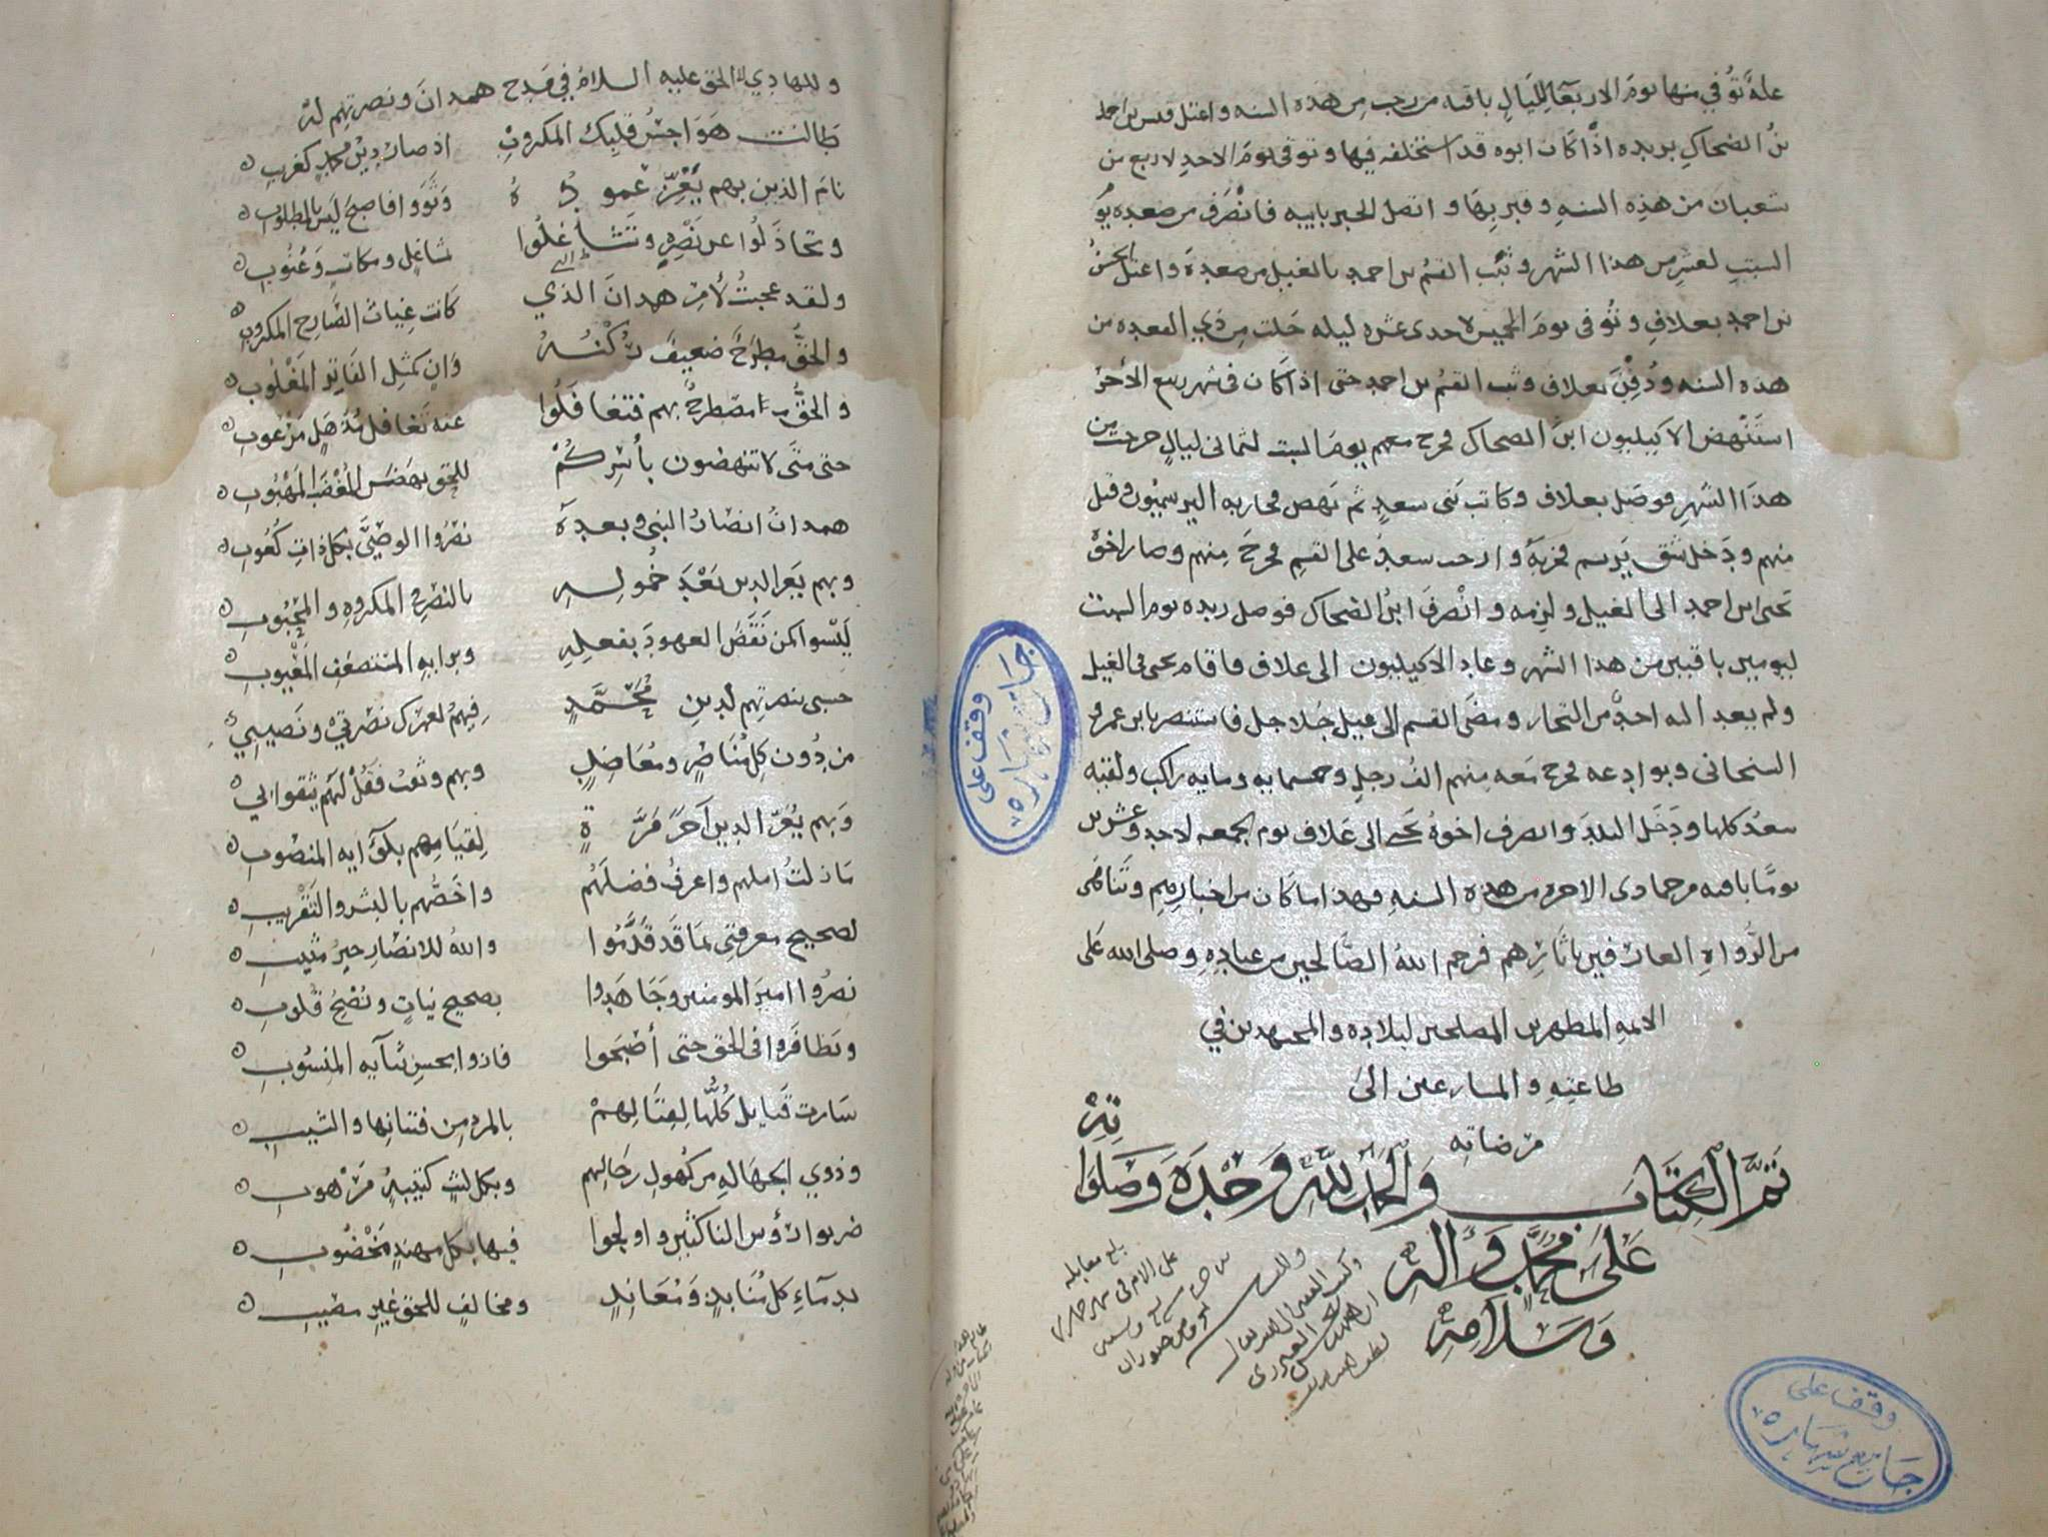 علة توفي منها يوم الاربعا لليال باقية من رجب من هذه السنه واعتل قيس بن احمد
بن الضحاك بريده اذ كان ابوه قد استخلفه فيها وتوفى يوم الاحد لاربع من
شعبان من هذه السنه وقبر بها و اتصل الخبر بابيه فانصرف من صعده يوم
السبت لعشر من هذا الشهر وثبت القسم بن احمد بالغيل من صعدة واعتل الحسن
بن احمد بعلاف وتوفى يوم الخميس لاحدى عشره ليله خلت من ذي القعده من
هذه السنه ودفن بعلاف وثبت القسم بن احمد حتى اذا كان في شهر ربيع الأخر
استنهض الاكيليون ابن الضحاك فخرج معهم يوم السبت لثماني ليال خرجت من
هذا الشهر فوصل بعلاف وكاتب بني سعد ثم نهض لمحاربه اليرسميون وقتل
منهم ودخل شق يرسم فخربه و سعد على القسم فخرج منهم وصار اخوه
يحيى ابن احمد الى الغيل ولزمه وانصرف ابن الضحاك فوصل ريده يوم السبت
ليومين باقيين من هذا الشهر وعاد الاكيليون الى علاف فاقام يحيى في الغيل
ولم يعد اليه احد من التجار ومضى القسم الى جلاجل فاستنصر بابن عمرو
السنحانى و وادعه فخرج معه منهم الف رجل وخمسمايه ومايه راكب ولقيه
سعد كلها ودخل البلد وانصرف اخوه يحيى الى علاف يوم الجمعه لاحد وعشرين
يوما باقيه من جمادى الاخره من هذه السنه فهذا ما كان من اخبارهم وتناهى
من الرواه العارفين باثارهم فرحم الله الصالحين من عباده وصلى الله على
الايمه المطهرين المصلحين لبلاده والمجتهدين في
طاعته والمسارعين الى
مرضاته
تم الكتاب والحمد لله وحده وصلواته
على محمد وآله
وسلامه
بلغ مقابله
على الام في شهر
وقف على
جامع شهاره
وقف على
جامع شهاره
وللهادي الى الحق عليه السلام في مدح همدان ونصرتهم له
طالت هواجس قلبك المكروب اذ صار دين محمد كغريب
نام الذين بهم يعزز عموده وثووا فاصبح ليس بالمطلوب
وتخاذلوا عن نصره وتشاغلوا شاغل ومكاتب وعتوب
ولقد عجبت لأمر همدان الذي كانت غياث الصارخ المكروب
والحق مطرح ضعيف ركنه وان كمثل الفاتر المغلوب
والحق مطرح بهم فتغافلوا عنه تغافل مذهل مرعوب
حتى متى لا تنهضون بأسركم للحق نهض المغضب المهبوب
همدان انصار النبى وبعده نصروا الوصي بكل ذات كعوب
وبهم يعز الدين بعد خموله بالنصر في المكروه والمحبوب
ليسوا كمن نقض العهود بفعله وبرايه المنتصف المعيوب
حسبى بنصرتهم لدين محمد فيهم لعمرك نصرتي ونصيبي
من دون كل مناصر ومعاضد وبهم وثقت فقل لهم يثقوا بي
وبهم يعز الدين آخر مرة لقيامهم بلوآيه المنصوب
ما زلت املهم واعرف فضلهم واخصهم بالبشر والتقريب
لصحيح معرفتى بما قد قدموا والله للانصار خير مثيب
نصروا امير المومنين وجاهدوا بصحيح نيات ونصح قلوب
وتظافروا في الحق حتى أصبحوا فازوا بحسن ثنآيه المنسوب
سارت قبايل كلها لقتالهم بالمرد من فتيانها والشيب
وذوي الجهاله من كهول رجالهم وبكل ليث كتيبه مرهوب
ضربوا رؤس الناكثين واولجوا فيها بكل مهند مخضوب
بدمآء كل منابذ ومعاند ومخالف للحق غير مصيب